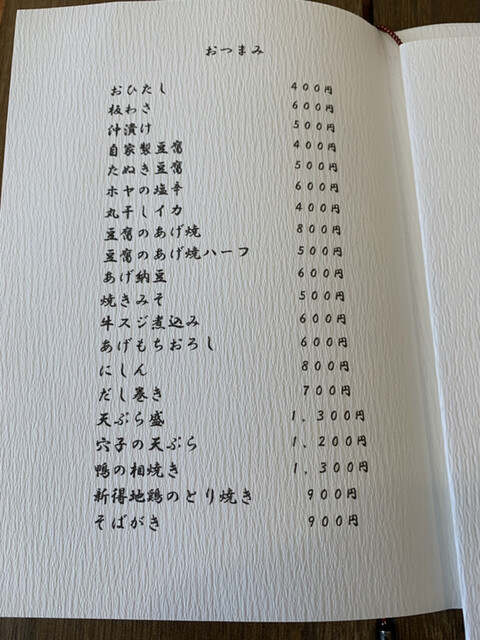 おつまみ
おひたし 400円
板わさ 600円
沖漬け 500円
自家製豆腐 400円
たぬき豆腐 500円
ホヤの塩辛 600円
丸干しイカ 400円
豆腐のあげ焼 800円
豆腐のあげ焼ハーフ 500円
あげ納豆 600円
焼きみそ 500円
牛スジ煮込み 600円
あげもちおろし 600円
にしん 800円
だし巻き 700円
天ぷら盛 1,300円
穴子の天ぷら 1,200円
鴨の相焼き 1,300円
新得地鶏のとり焼き 900円
そばがき 900円